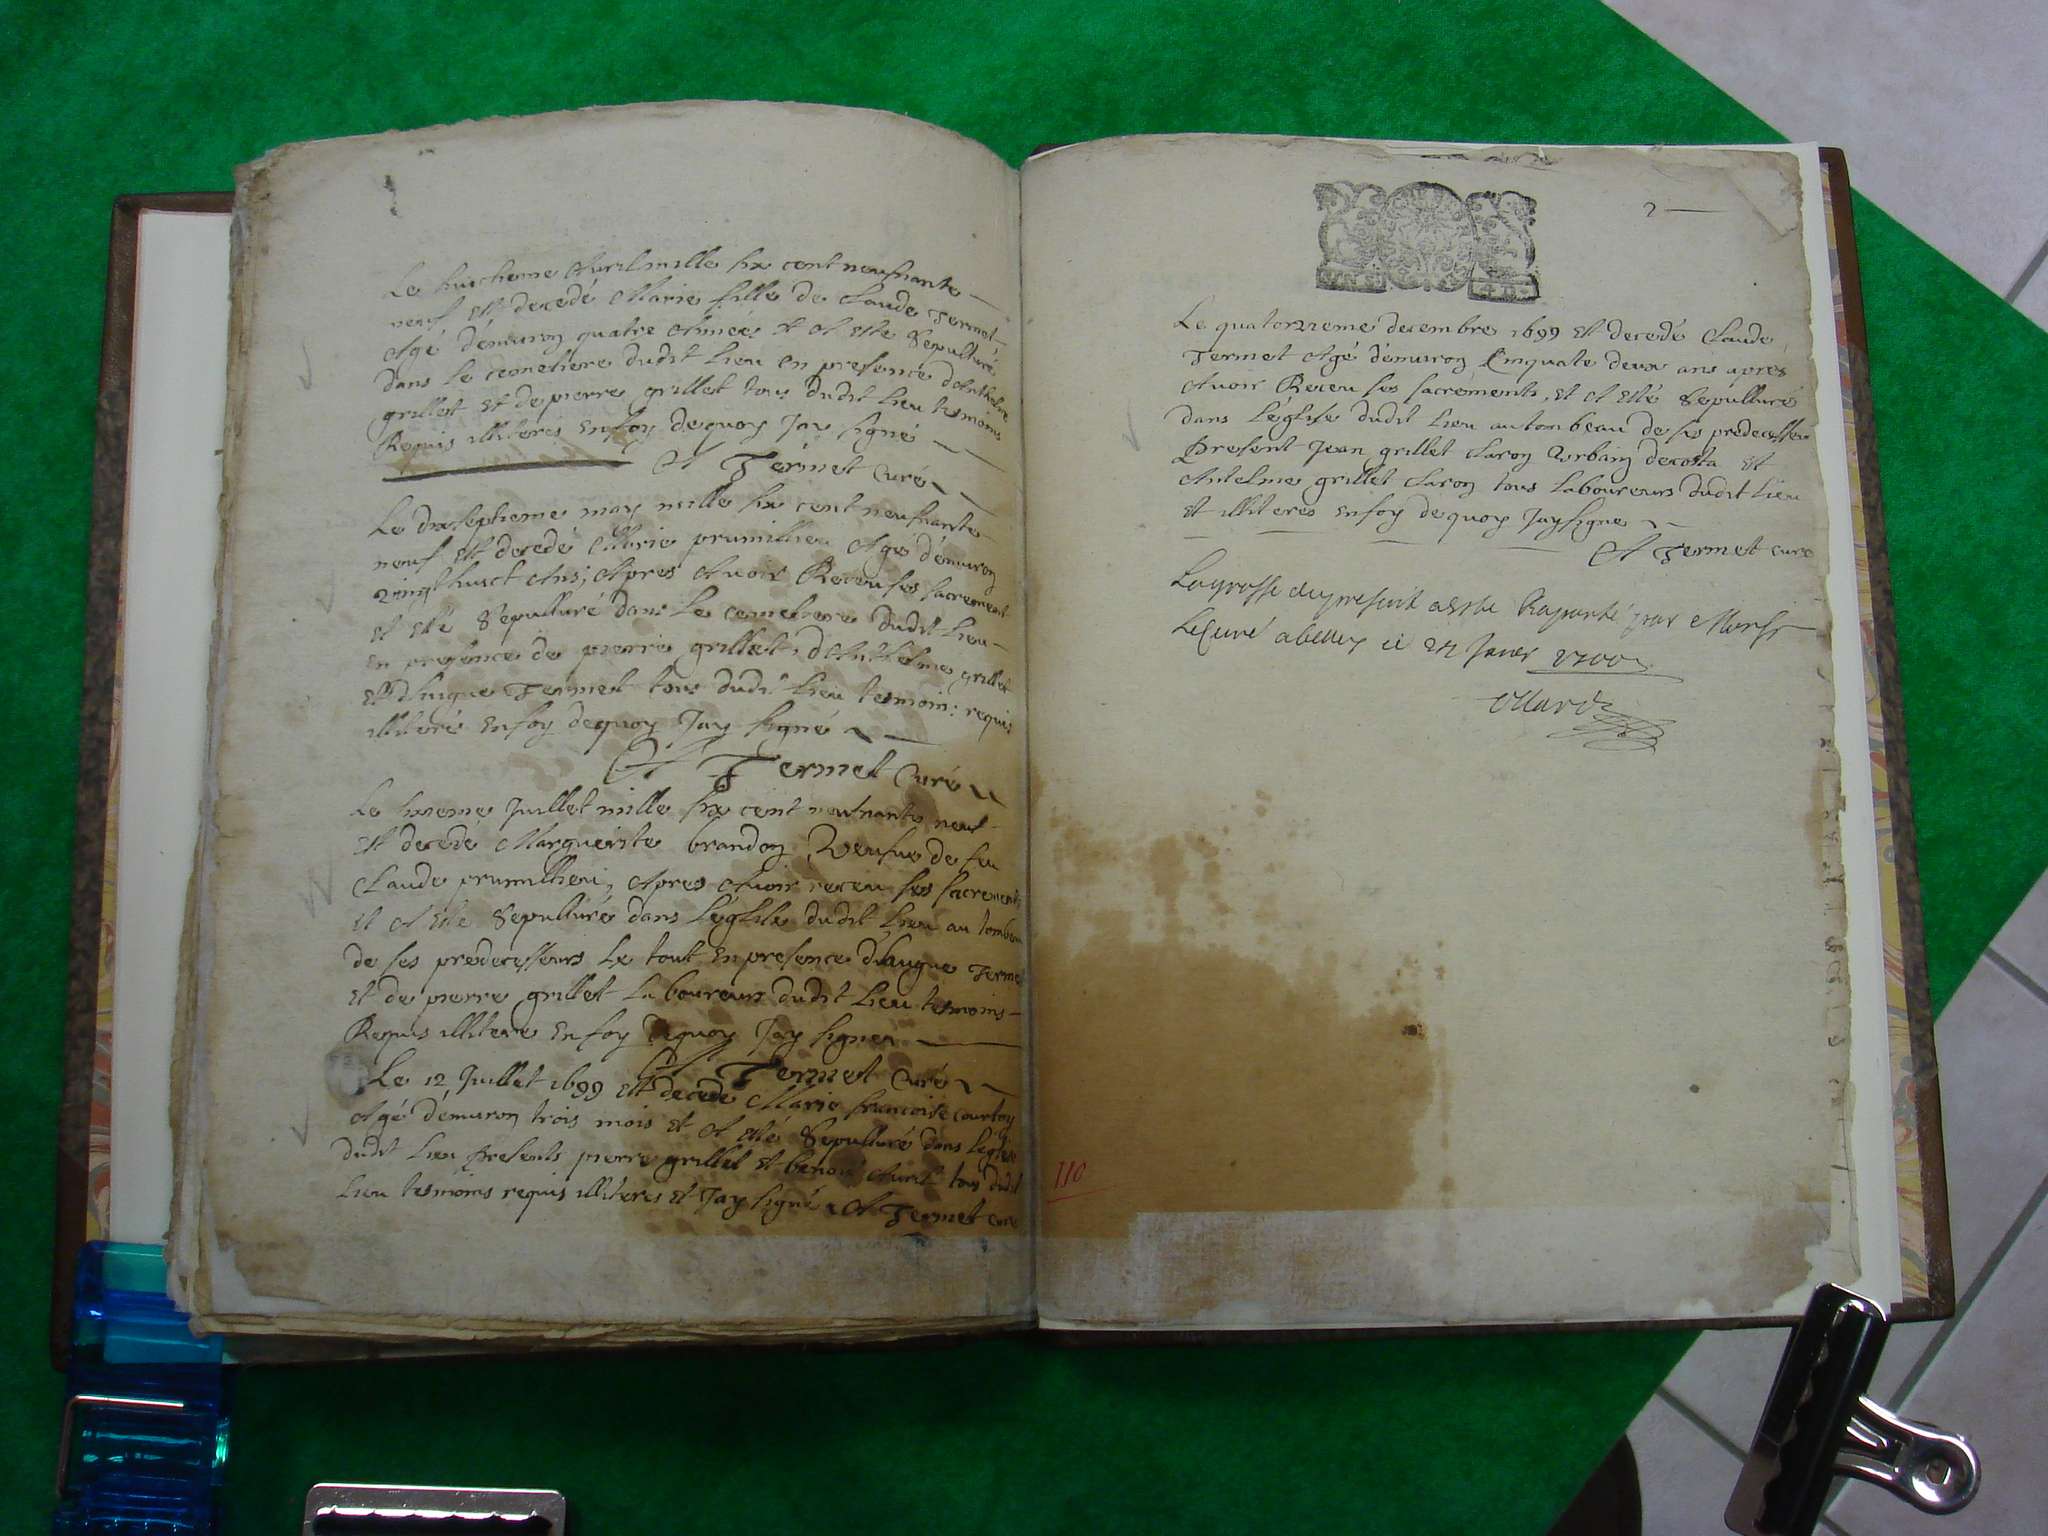 Le huictieme Avril mille six cent neufnante
neuf est decedé Marie fille de Claude Fermet
Agé d'environ quatre Années et A esté Sepulturé
dans le cemetiere dudit Lieu en presence d'Anthelme
grillet et de pierre grillet tous dudit Lieu tesmoins
Requis illiteres en foy de quoy J'ay signé
A Fermet curé
Le dixseptieme may mille six cent neufnante
neuf est decedé Marie prumillieu Agé d'environ
vingt huict Ans, Apres Avoir Receu ses sacrement
et esté Sepulturé dans Le cemetiere dudit Lieu
en presence de pierre grillet, d'Anthelme grillet
et d'hugue Fermet tous dudit Lieu tesmoins requis
illiteré en foy de quoy J'ay signé
A Fermet Curé
Le sixieme Juillet mille six cent neufnante neuf
est decedé Marguerite brandon Veufve de feu
Claude prumillieu, Apres Avoir receu ses sacrements
et A esté Sepulturé dans L'eglise dudit Lieu au tombeau
de ses predecesseurs Le tout en presence d'haugue Fermet
et de pierre grillet Laboureurs dudit Lieu tesmoins
Requis illiteres en foy de quoy J'ay signer
A Fermet Curé
Le 12 Juillet 1699 est decedé Marie francoise courtoy
Agé d'environ trois mois et A esté Sepulturé dans L'eglise
dudit Lieu presents pierre grillet et benoit tous dudit
Lieu tesmoins requis illiteres et J'ay signé A Fermet curé
2
Le quatorzieme decembre 1699 est decedé Claude
Fermet Agé d'environ Cinquate deux ans apres
Avoir Receu ses sacrements, et A esté Sepulturé
dans L'église dudit Lieu au tombeau de ses predecesseu
Present Jean grillet Claron Vrbain decosta et
Antelme grillet Claron tous Laboureurs dudit Lieu
et illiteres en foy de quoy J'ay signe
A Fermet curé
La grosse du present a esté Raporté par Mons.r
Le Curé a belley ce Janer 1700
110